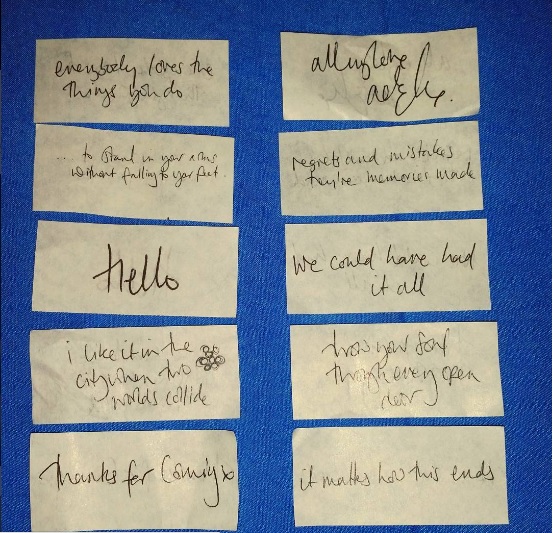 everybody loves the
things you do
all my love
.... to stand in your arms
without falling to your feet.
regrets and mistakes
they're memories made
Hello
We could have had
it all
i like it in the
city when two
worlds collide
throw your soul
through every open
door
Thanks for Coming x
it matters how this ends